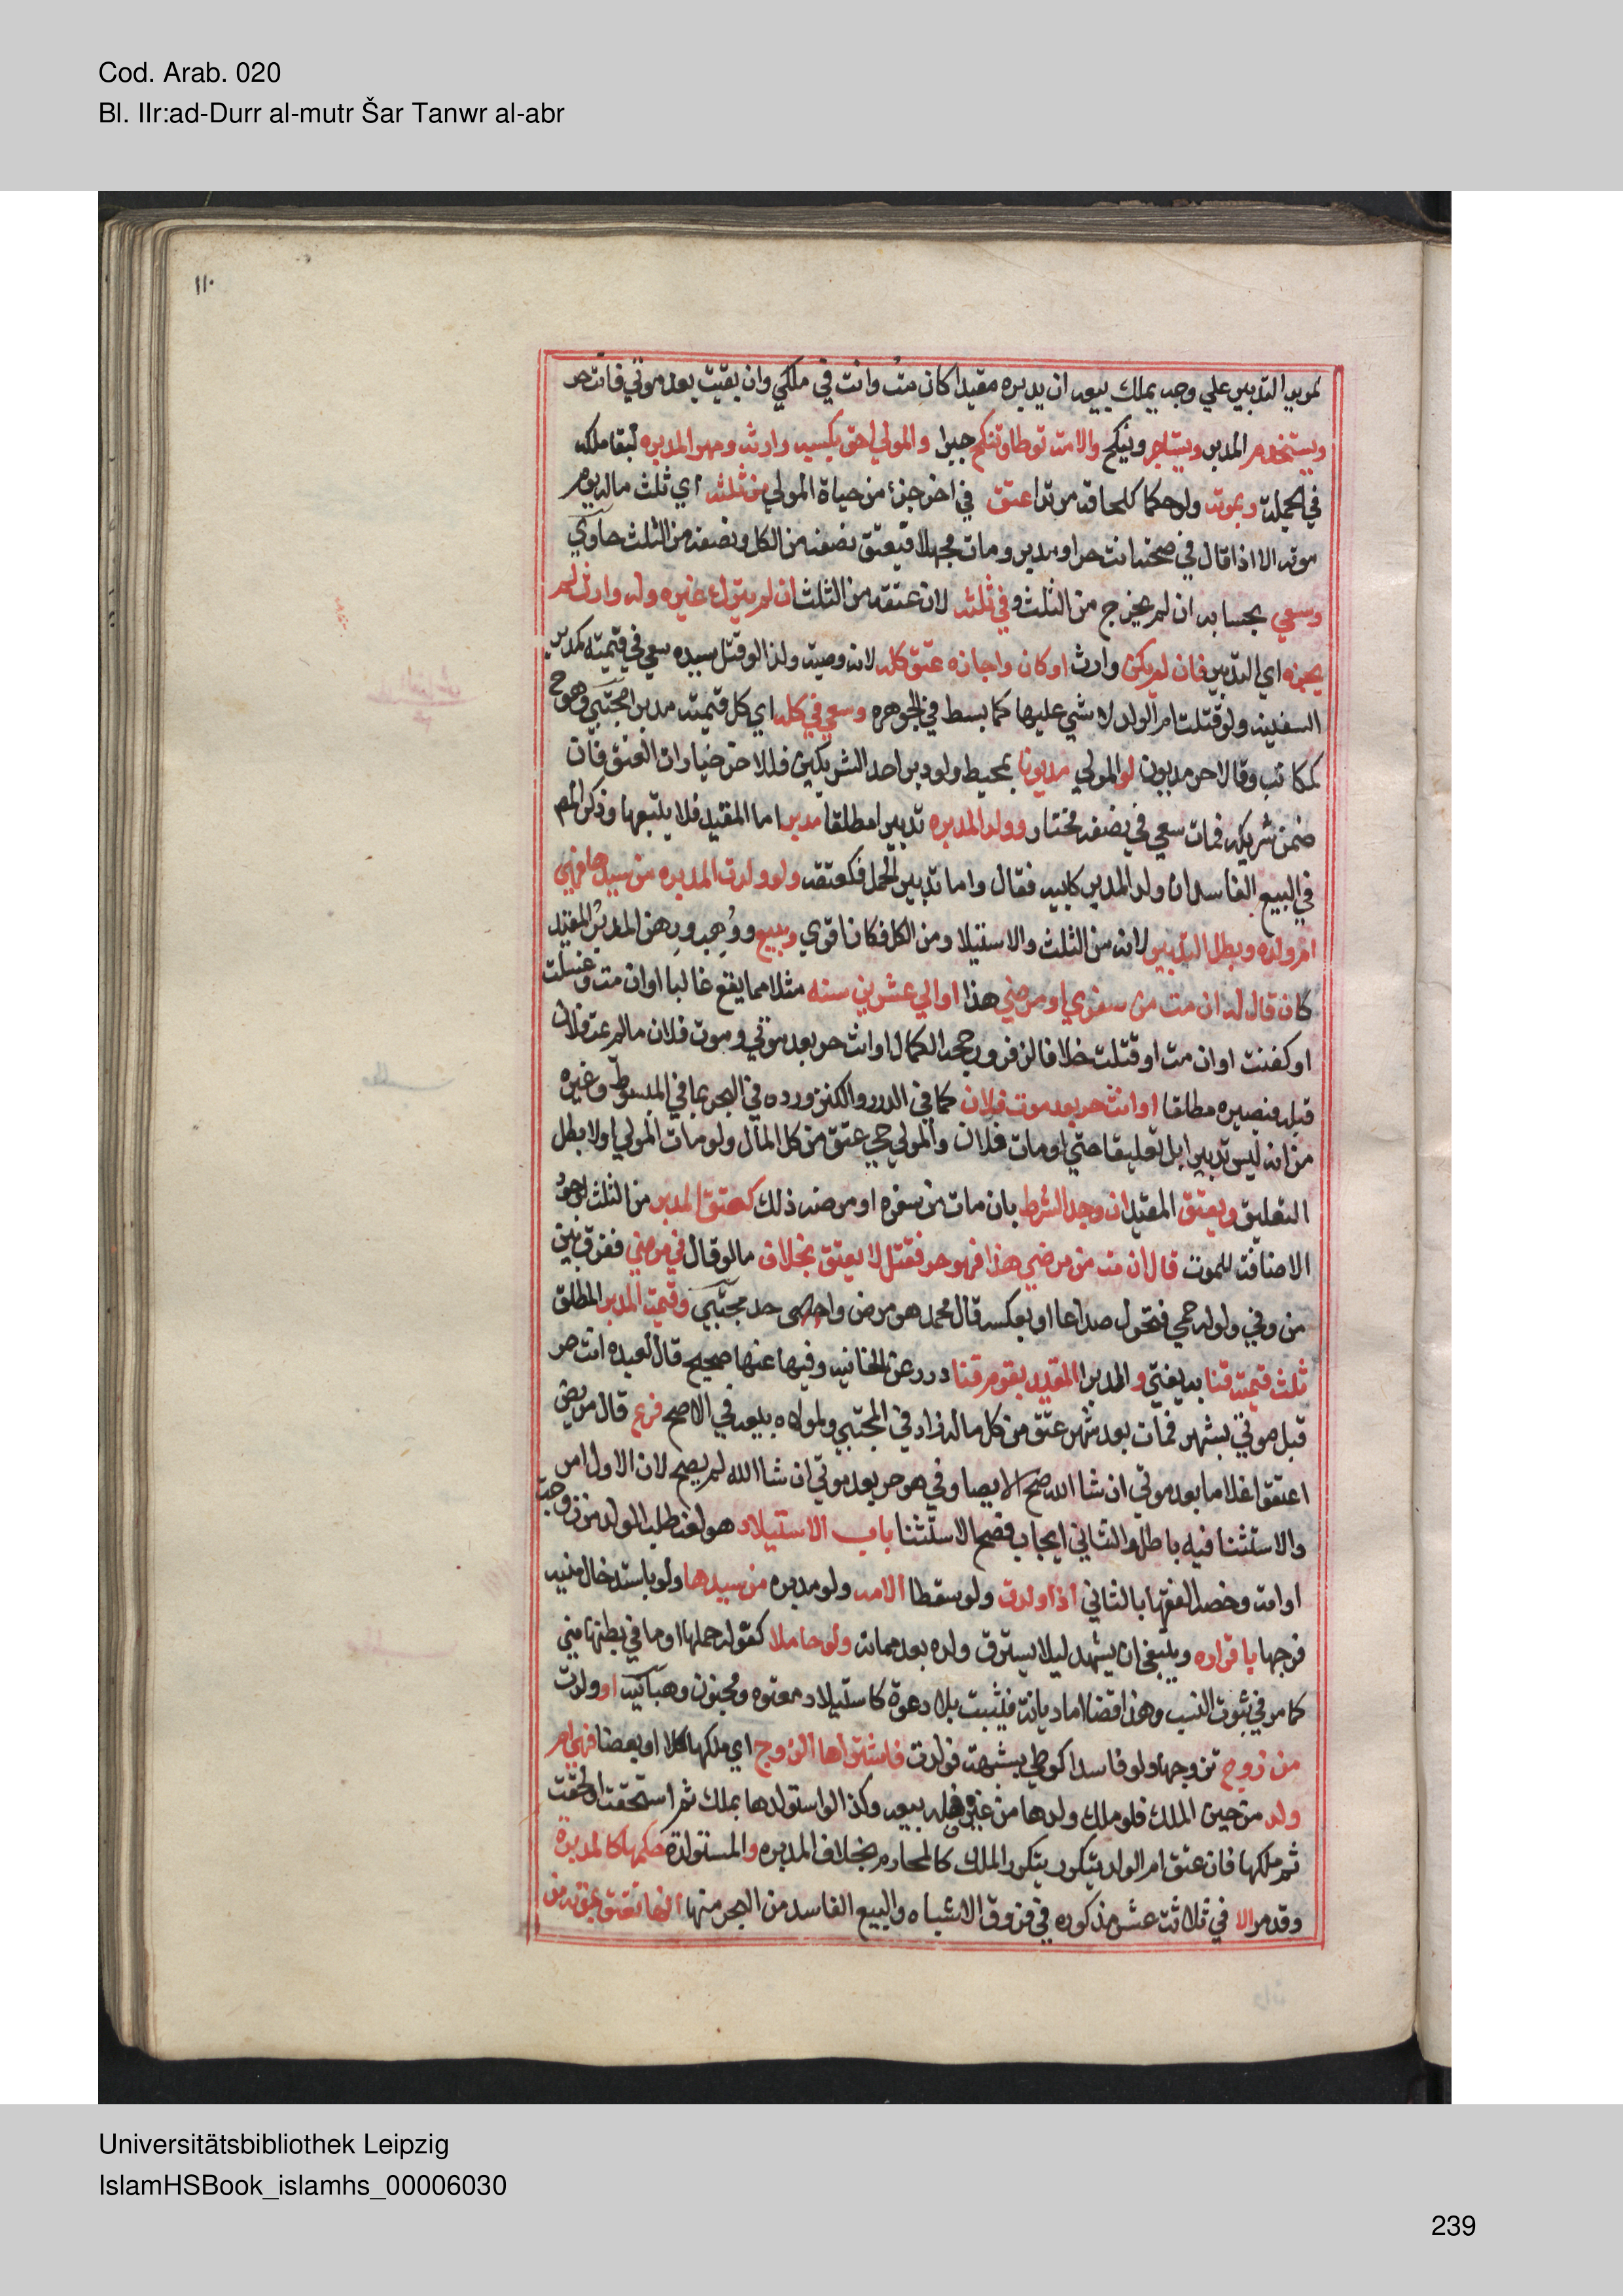 Cod. Arab. 020
Bl. IIr:ad-Durr al-mutr Šar Tanwr al-abr
١١٠
لمريد التدبير علي وجه يملك بيعه ان يدبره مقيدا كان مت وانت في ملكي وان بقيت بعد موتي فانت حر
ويستخدم المدبر ويستاجر وينكح والامة توطا وتنكح جبرا والمولي احق بكسبه وارشه ومهر المدبره لبقا ملكه
في الجملة وبموته ولو حكما كلحاقه مرتدا عتق في اخر جزء من حياة المولي من ثلثه اي ثلث ماله يوم
موته الا اذا قال في صحته انت حر او مدبر ومات مجهلا فيعتق نصفه من الكل ونصفه من الثلث حاوي
وسعي بحسابه ان لم يخرج من الثلث وفي ثلثيه لان عتقه من الثلث ان لم يترك غيره وله وارث لم
يجزه اي التدبير فان لم يكن وارث او كان واجازه عتق كله لانه وصية ولذا لو قتل سيده سعي في قيمته كمدبر
السفيه ولو قتلت ام الولد لا شي عليها كما بسط في الجوهره وسعي في كله اي كل قيمته مدبرا مجتبي وهو ح
كمكاتب وقالا حر مديون لو المولي مديونا بمحيط ولو دبر احد الشريكين فللاخر خيارات العتق فان
ضمن شريكه فمات سعي في نصفه مختار وولد المدبره تدبيرا مطلقا مدبر اما المقيد فلا يتبعها وذكر المص
في البيع الفاسد ان ولد المدبر كابيه فقال واما تدبير الحمل فكعتقه ولو ولدت المدبره من سيدها فهي
ام ولده وبطل التدبير لانه من الثلث والاستيلاد من الكل فكان اقوي وبيع ووهب ورهن المدبر المقيد
كان قال له ان مت من سفري او مرضي هذا او الي عشرين سنه مثلا مما يقع غالبا او ان مت وغسلت
او كفنت او ان مت او قتلت خلافا لزفر ورجحه الكمال او انت حر بعد موتي وموت فلان ما لم يمت فلان
قبله فيصيره مطلقا او انت حر بعد موت فلان كما في الدرر والكنز ورده في البحر بما في المبسوط وغيره
من انه ليس تدبيرا بل تعليقا حتي لو مات فلان والمولي حي عتق من كل المال ولو مات المولي اولا بطل
التعليق ويعتق المقيد ان وجد الشرط بان مات من سفره او مرضه ذلك كعتق المدبر من الثلث لوجود
الاضافة للموت قال ان مت من مرضي هذا فهو حر فقتل لا يعتق بخلاف ما لو قال في مرضي ففرق بين
من وفي ولو له حمي فتحول صداعا او بعكسه قال محمد هو مرض واحد مجتبي وقيمة المدبر المطلق
ثلث قيمته قنا به يفتي و المدبر المقيد يقوم قنا درر عن الخانيه وفيها عنها صحيح قال لعبده انت حر
قبل موتي بشهر فمات بعد شهر عتق من كل ماله زاد في المجتبي ولمولاه بيعه في الاصح فرع قال مريض
اعتقوا غلاما بعد موتي ان شا الله صح الايصا وفي هو حر بعد موتي ان شا الله لم يصح لان الاول امر
والاستثنا فيه باطل والثاني ايجاب فصح الاستثنا باب الاستيلاد هو لغة طلب الولد من زوجة
او امة وخصه الفقها بالثاني اذا ولدت ولو سقطا الامه ولو مدبره من سيدها ولو باستدخال منيه
فرجها باقراره وينبغي ان يشهد ليلا يسترق ولده بعد مماته ولو حاملا كقوله حملها او ما في بطنها مني
كما مر في ثبوت النسب وهذا قضا اما ديانة فيثبت بلا دعوة كاستيلاد معتوه ومجنون وهبانيه او ولدت
من زوج تزوجها ولو فاسدا كوطي بشبهة فولدت فاشتراها الزوج اي ملكها كلا او بعضا فهي ام
ولد من حين الملك فلو ملك ولدها من غيره فله بيعه وكذا لو استولدها بملك ثم استحقت او لحقت
ثم ملكها فان عتق ام الولد يتكرر بتكرر الملك كالمحارم بخلاف المدبره والمستولدة حكمها كالمدبرة
وقد مر الا في ثلاثة عشر مذكوره في فروق الاشباه والبيع الفاسد من البحر منها انها تعتق بموته من
Universitätsbibliothek Leipzig
IslamHSBook_islamhs_00006030
239